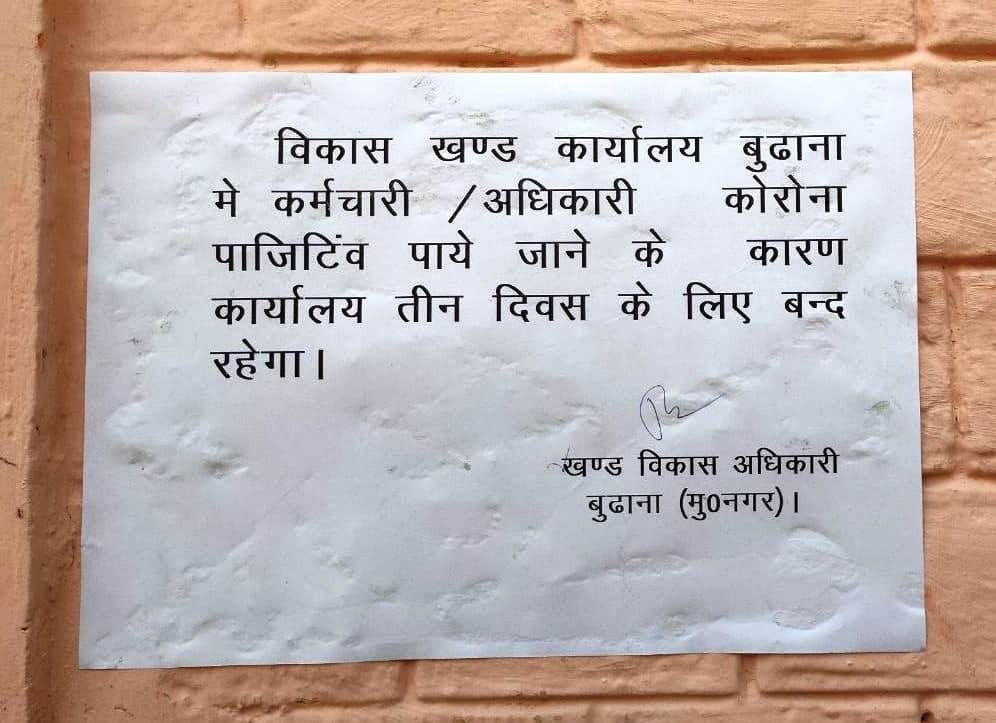 विकास खण्ड कार्यालय बुढाना
मे कर्मचारी /अधिकारी कोरोना
पाजिटिंव पाये जाने के कारण
कार्यालय तीन दिवस के लिए बन्द
रहेगा।
खण्ड विकास अधिकारी
बुढाना (मु0नगर)।